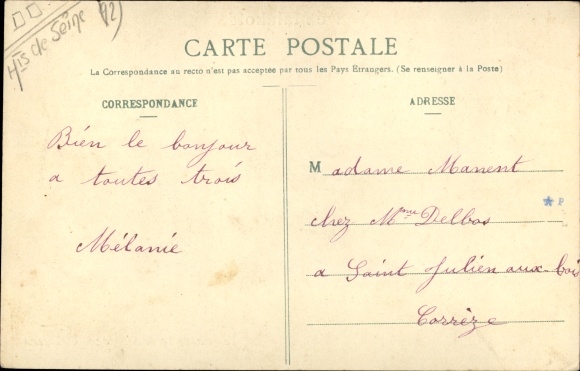 Hts de Seine 92)
CARTE POSTALE
La Correspondance au recto n'est pas acceptée par tous les Pays Étrangers. (Se renseigner à la Poste)
CORRESPONDANCE
Bien le bonjour
a toutes trois
Mélanie
ADRESSE
Madame Manent
chez Mme Delbos
a Saint Julien aux bois
Corrèze
* P